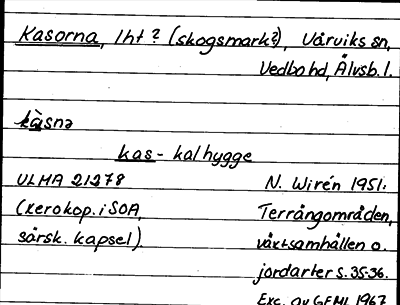 Kasorna, lht? (skogsmark?), Vårviks sn,
Vedbo hd, Älvsb. l.
kàsnə
kas- kalhygge
ULMA 21278 N. Wirén 1951.
(xerokop. i SOA, Terrängområden,
särsk. kapsel) växtsamhällen o.
jordarter s. 35-36.
Exc. av GEMI 1967